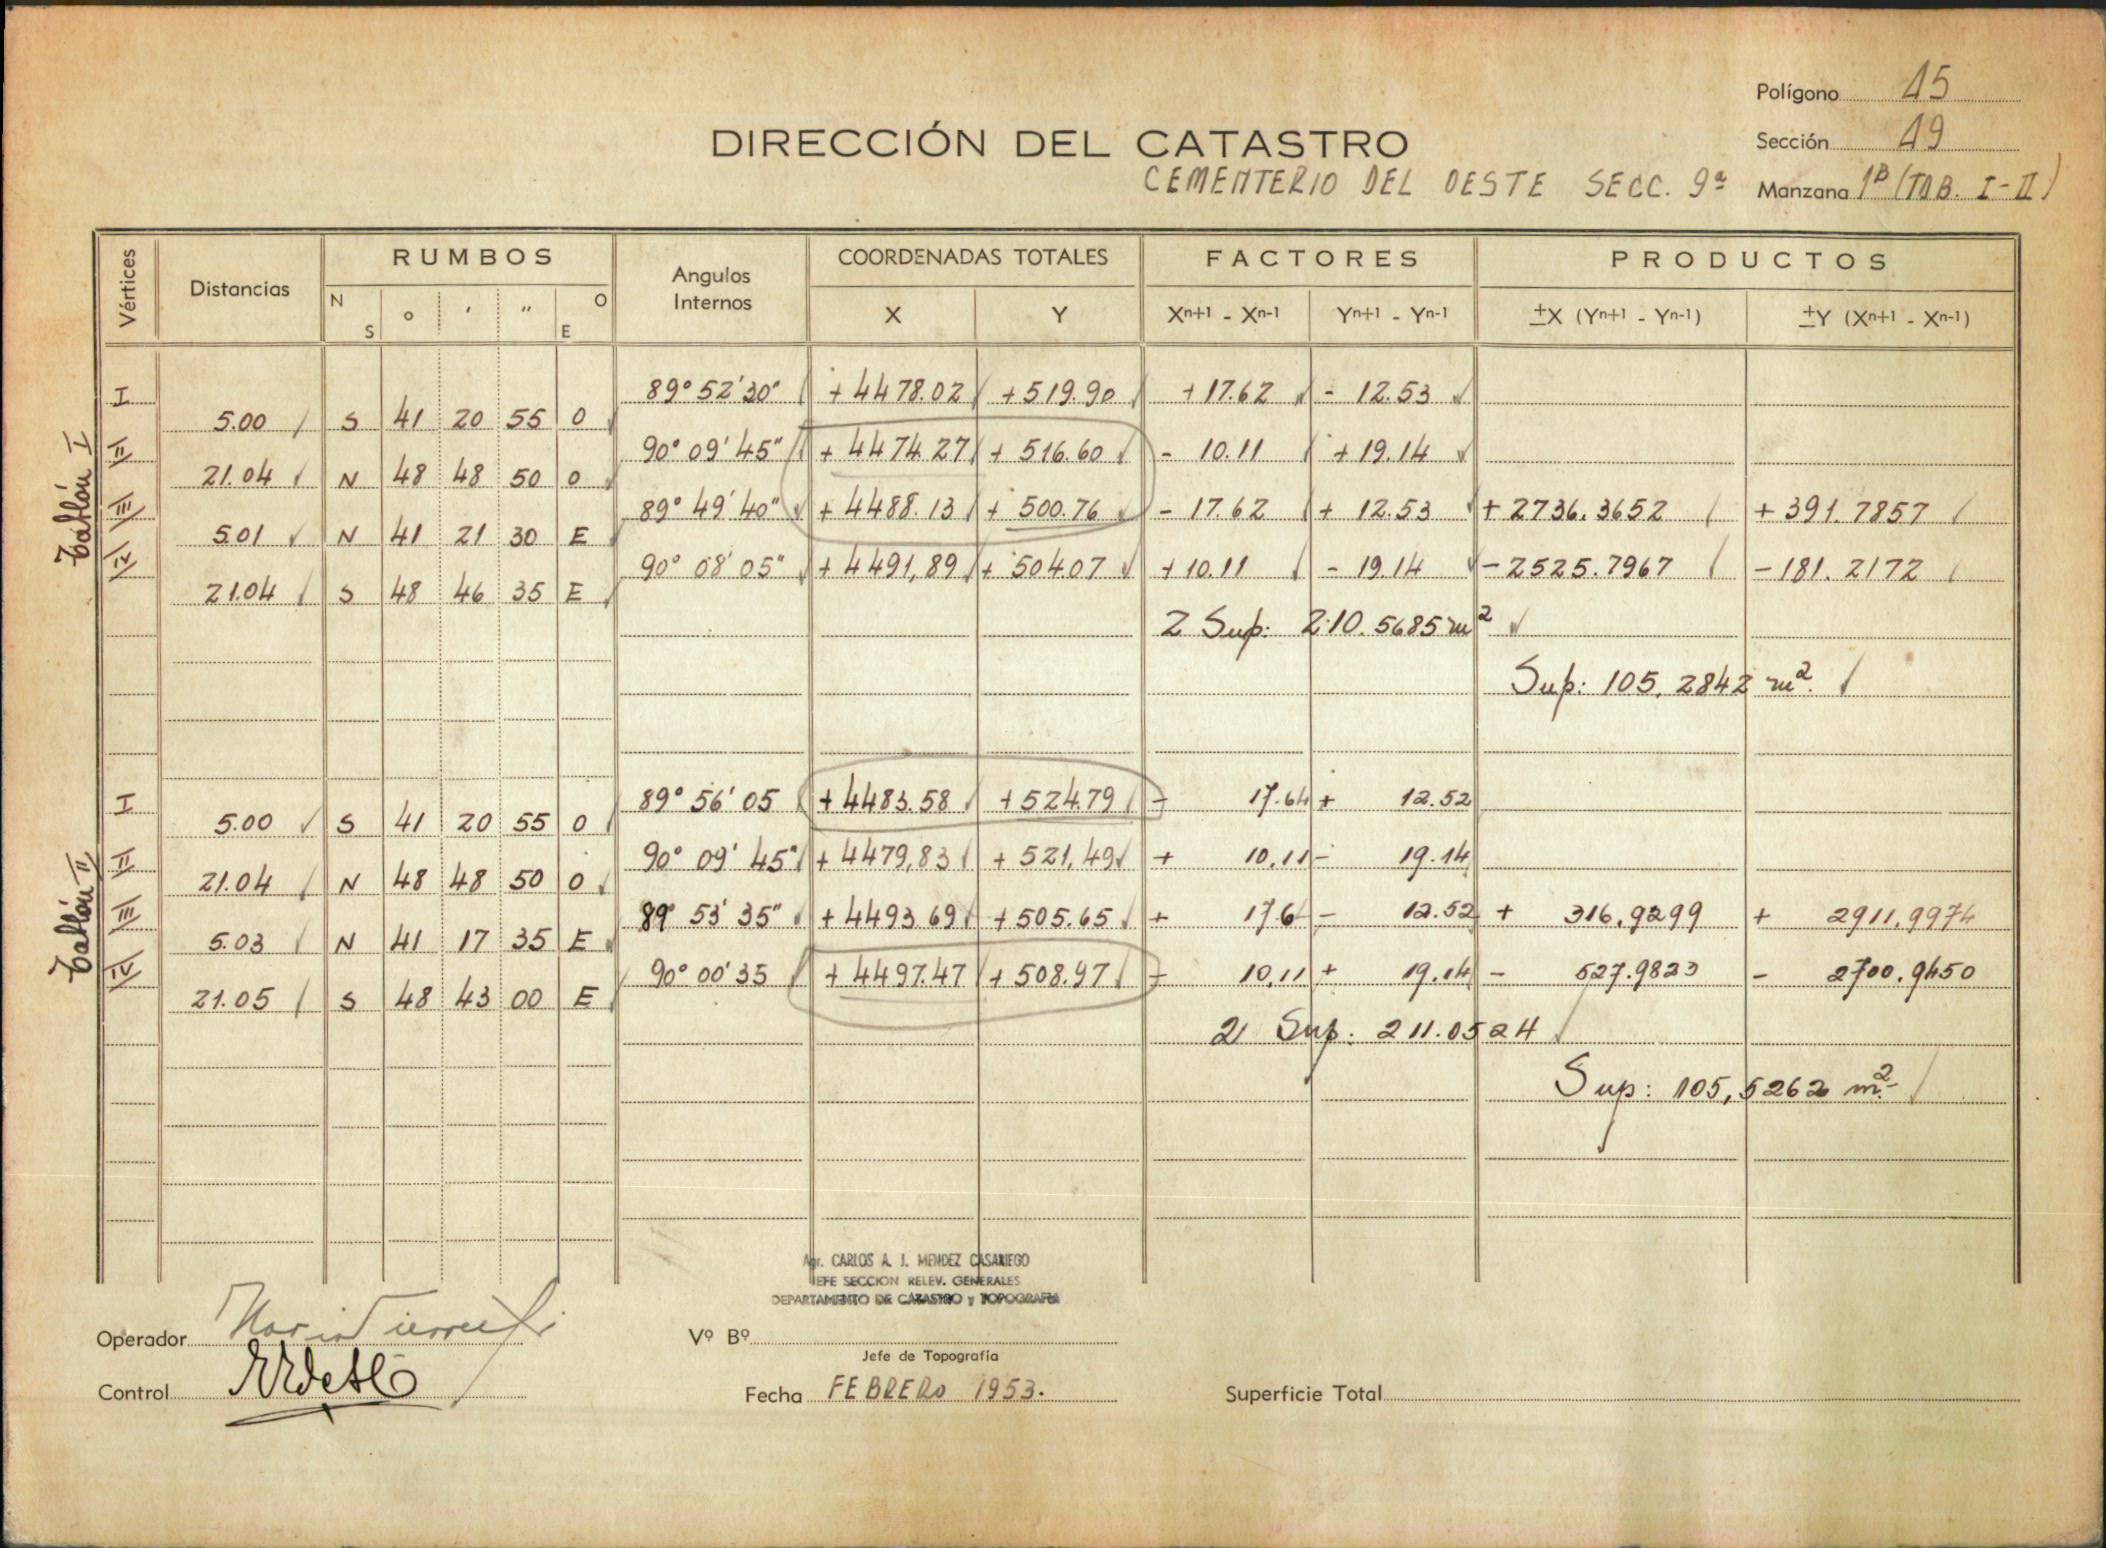 Polígono 15
DIRECCIÓN DEL CATASTRO
Sección 19
CEMENTERIO DEL OESTE SECC. 9ª
Manzana 1B (TAB. I-II)
Vértices Distancias RUMBOS Angulos Internos COORDENADAS TOTALES FACTORES PRODUCTOS
N S o ′ ″ O E X Y Xn+1 - Xn-1 Yn+1 - Yn-1 ±X (Yn+1 - Yn-1) ±Y (Xn+1 - Xn-1)
Tablón I
I 89° 52' 30" +4478.02 +519.90 +17.62 - 12.53
5.00 S 41 20 55 O
II 90° 09' 45" +4474.27 +516.60 - 10.11 +19.14
21.04 N 48 48 50 O
III 89° 49' 40" +4488.13 +500.76 - 17.62 + 12.53 +2736.3652 +391.7857
5.01 N 41 21 30 E
IV 90° 08' 05" +4491,89 +504.07 +10.11 - 19.14 -2525.7967 -181.2172
21.04 S 48 46 35 E
2 Sup: 210.5685 m²
Sup: 105,2842 m².
Tablón II
I 89° 56' 05 +4483.58 +524.79 - 17.64 + 12.52
5.00 S 41 20 55 O
II 90° 09' 45" +4479,83 +521,49 + 10,11 - 19.14
21.04 N 48 48 50 O
III 89° 53' 35" +4493.69 +505.65 + 17.6 - 12.52 + 316,9299 + 2911,9974
5.03 N 41 17 35 E
IV 90° 00' 35 +4497.47 +508.97 - 10,11 + 19.14 - 527.9823 - 2700.9450
21.05 S 48 43 00 E
2 Sup: 211.0524
Sup: 105,5262 m²
Agr. CARLOS A. J. MENDEZ CASARIEGO
JEFE SECCION RELEV. GENERALES
DEPARTAMENTO DE CATASTRO y TOPOGRAFIA
Operador
Vº Bº
Jefe de Topografía
Control
Fecha FEBRERO 1953.
Superficie Total